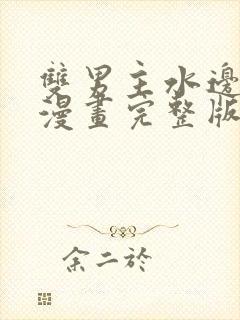 雙男主水邊
漫畫完整版
余二於